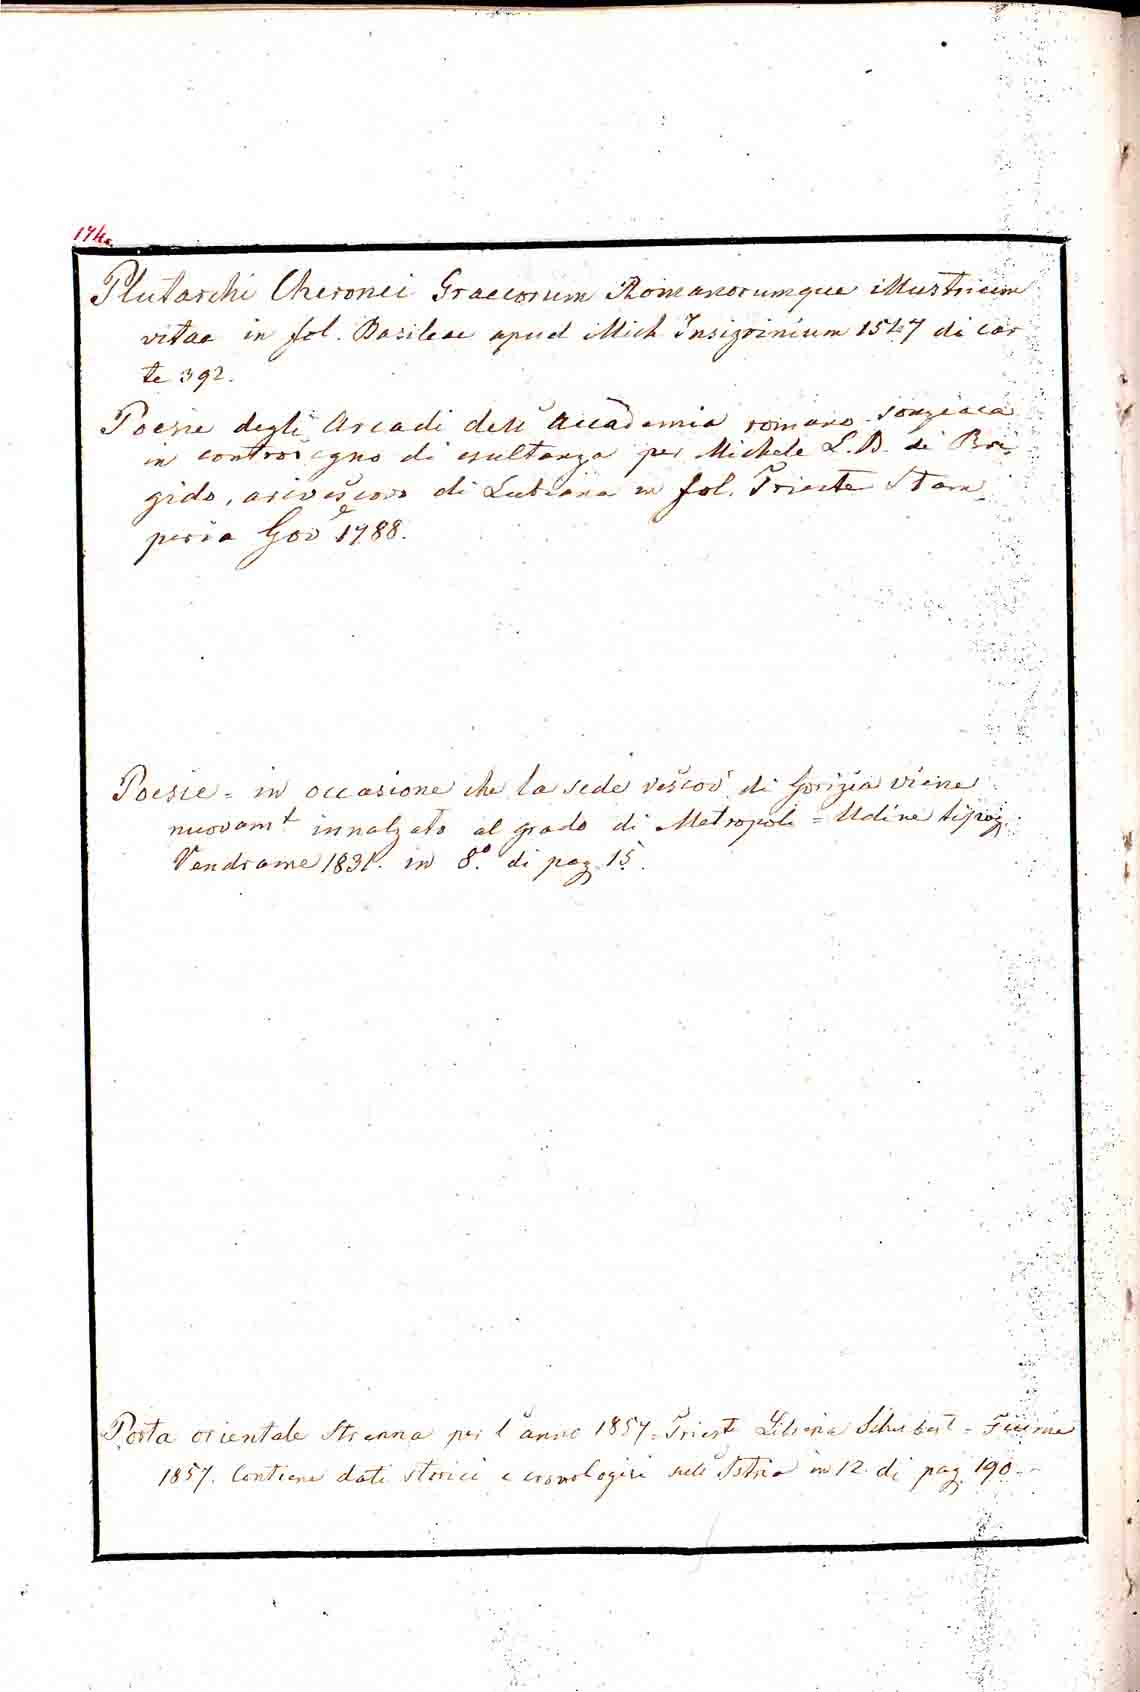 174.
Plutarchi Cheronei Graecorum Romanorumque illustrium
vitae in fol. Basileae apud Mich Insigrinium 1547 di car
te 392.
Poesie degli Arcadi dell'Accademia romano-sonziaca
in contrasegno di esultanza per Michele L. B. de Bri-
gido, arivescovo di Lubiana in fol. Trieste Stam
peria Gove 1788.
Poesie = in occasione che la sede vescov di Gorizia viene
nuovamt innalzato al grado di Metropoli = Udine tipog.
Vendrame 1831. in 8.o di pag. 15.
Porta orientale Strenna per l'anno 1857 = Trieste Libreria Schubart = Fiume
1857. Contiene dati storici e cronologici sull'Istria in 12. di pag. 190.